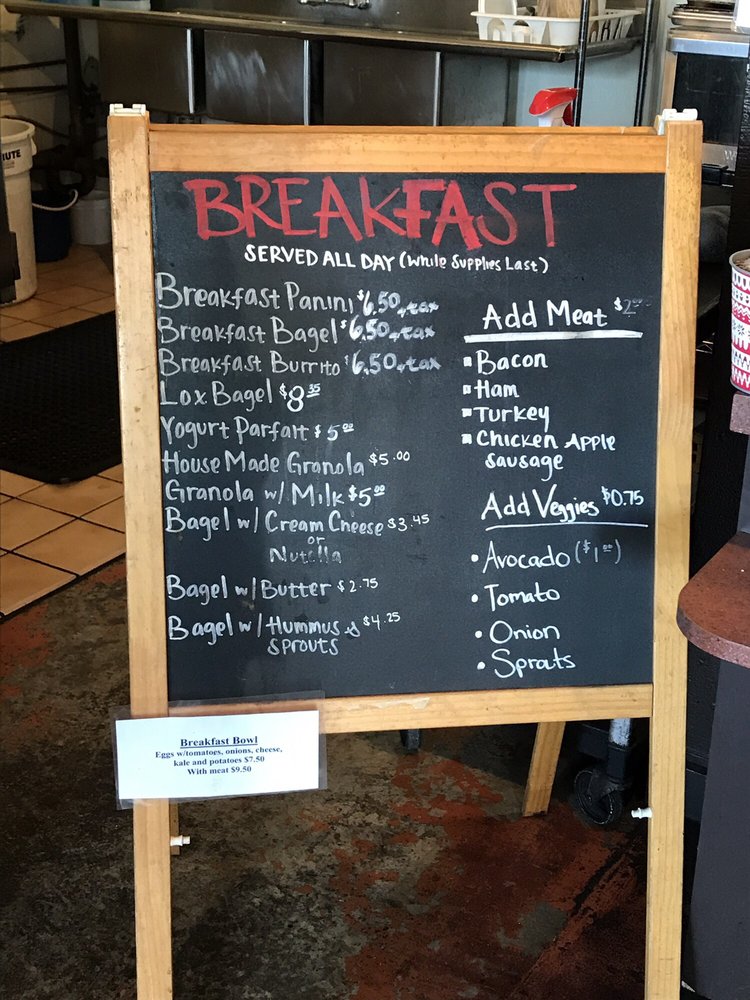 BREAKFAST
SERVED ALL DAY (While Supplies Last)
Breakfast Panini $6.50+tax
Breakfast Bagel $6.50+tax
Breakfast Burrito $6.50+tax
Lox Bagel $8.35
Yogurt Parfait $5.00
House Made Granola $5.00
Granola w/ Milk $5.00
Bagel w/ Cream Cheese $3.45
or
Nutella
Bagel w/ Butter $2.75
Bagel w/ Hummus & $4.25
sprouts
Add Meat $2.00
Bacon
Ham
Turkey
Chicken Apple
sausage
Add Veggies $0.75
Avocado ($1.00)
Tomato
Onion
Sprouts
Breakfast Bowl
Eggs w/tomatoes, onions, cheese,
kale and potatoes $7.50
With meat $9.50